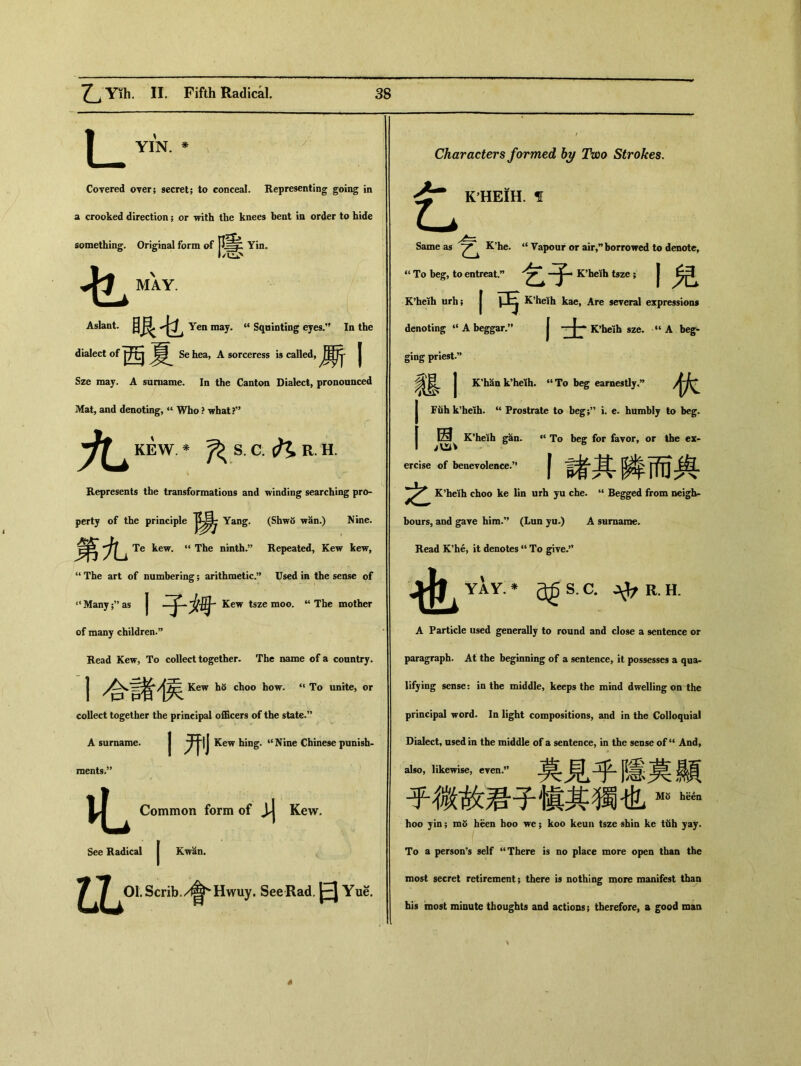 乙 Yĭh. II. Fifth Radical. 38
乚 YÌN. *
Covered over; secret; to conceal. Representing going in
a crooked direction; or with the knees bent in order to hide
something. Original form of 隱 Yin.
乜 MÀY.
Aslant. 眼乜 Yen may. “ Squinting eyes.” In the
dialect of 西夏 Se hea, A sorceress is called, 厮 |
Sze may. A surname. In the Canton Dialect, pronounced
Mat, and denoting, “ Who ? what?”
九 KÈW. * S. C. R. H.
Represents the transformations and winding searching pro-
perty of the principle 陽 Yang. (Shwŏ wăn.) Nine.
第九 Te kew. “ The ninth.” Repeated, Kew kew,
“ The art of numbering; arithmetic.” Used in the sense of
“Many;” as | 子姆 Kew tsze moo. “ The mother
of many children.”
Read Kew, To collect together. The name of a country.
| 合諸侯 Kew hŏ choo how. “ To unite, or
collect together the principal officers of the state.”
A surname. | 刑 Kew hing. “Nine Chinese punish-
ments.”
Common form of 丩 Kew.
See Radical | Kwăn.
Ol. Scrib. 會 Hwuy. See Rad. 曰 Yuĕ.
Characters formed by Two Strokes.
乞 K'HEĬH. ¶
Same as 气 K'he. “ Vapour or air,” borrowed to denote,
“ To beg, to entreat.” 乞子 K'heĭh tsze; | 兒
K'heĭh urh; | 丐 K'heĭh kae, Are several expressions
denoting “ A beggar.” | 士 K'heĭh sze. “ A beg-
ging priest.”
懇 | K'hăn k'heĭh. “To beg earnestly.” 伏
| Fŭh k'heĭh. “ Prostrate to beg;” i. e. humbly to beg.
| 恩 K'heĭh găn. “ To beg for favor, or the ex-
ercise of benevolence.” | 諸其隣而與
之 K'heĭh choo ke lin urh yu che. “ Begged from neigh-
bours, and gave him.” (Lun yu.) A surname.
Read K'hé, it denotes “ To give.”
也 YÀY. * S. C. R. H.
A Particle used generally to round and close a sentence or
paragraph. At the beginning of a sentence, it possesses a qua-
lifying sense: in the middle, keeps the mind dwelling on the
principal word. In light compositions, and in the Colloquial
Dialect, used in the middle of a sentence, in the sense of “ And,
also, likewise, even.” 莫見乎隱莫顯
乎微故君子愼其獨也 Mŏ hëén
hoo yin; mŏ hëen hoo we; koo keun tsze shin ke tŭh yay.
To a person's self “There is no place more open than the
most secret retirement; there is nothing more manifest than
his most minute thoughts and actions; therefore, a good man